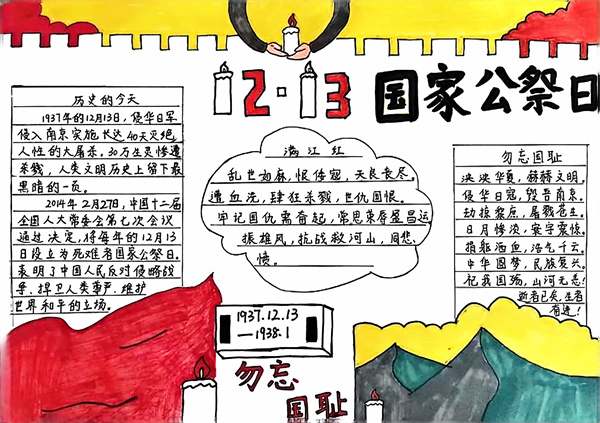 12·13 国家公祭日
历史的今天
1937年的12月13日，侵华日军
侵入南京实施长达40天灭绝
人性的大屠杀。30万生灵惨遭
杀戮，人类文明历史上留下最
黑暗的一页。
2014年2月27日，中国十二届
全国人大常委会第七次会议
通过决定，将每年的12月13
日设立为死难者国家公祭日。
表明了中国人民反对侵略战
争、捍卫人类尊严、维护
世界和平的立场。
满江红
乱世如麻，恨倭寇，天良丧尽。
遭血洗，肆狂杀戮，世仇国恨。
牢记国仇需奋起，常思荣辱显昌运
振雄风，抗战救河山，同悲
愤。
勿忘国耻
泱泱华夏，赫赫文明。
侵华日寇，毁吾南京。
劫掠黎庶，屠戮苍生。
日月惨淡，寰宇震惊。
捐躯洒血，浩气千云。
中华圆梦，民族复兴。
祀我国殇，山河无恙！
逝者已矣，生者
奋进！
1937.12.13
—1938.1
勿忘
国耻